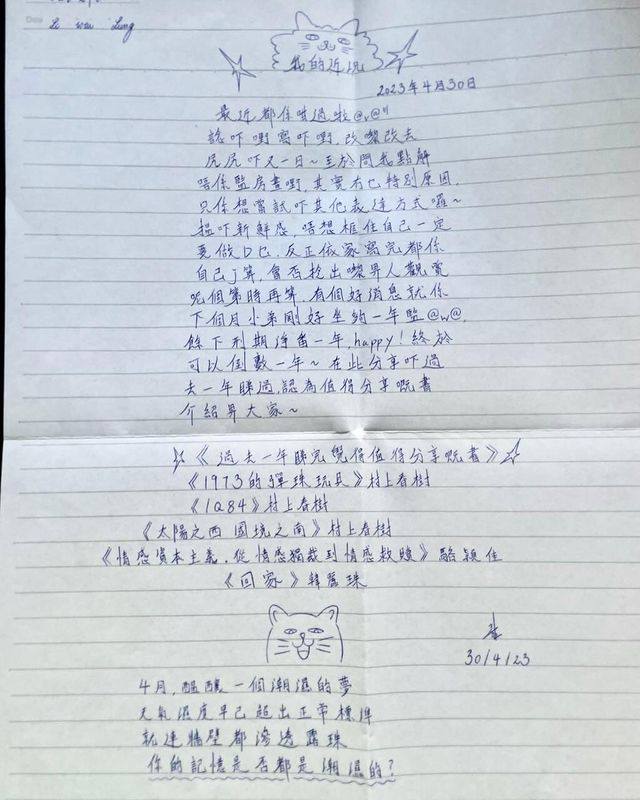 Li Wai Lung
我的近況
2023年4月30日
最近都係咁過啦@v@"
諗吓嘢寫吓嘢,改嚟改去
尻尻吓又一日~至於問我點解
唔係監房畫嘢,其實冇乜特別原因,
只係想嘗試吓其他表達方式囉~
搵吓新鮮感,唔想框住自己一定
要做D乜,反正依家寫完都係
自己J算,會否攞出嚟畀人觀賞
呢個第時再算,有個好消息就係
下個月小弟剛好坐夠一年監@w@,
餘下刑期淨番一年,happy!終於
可以倒數一年~在此分享吓過
去一年睇過,認為值得分享嘅書
介紹畀大家~
《過去一年睇完覺得值得分享嘅書》
《1973的彈珠玩具》村上春樹
《1Q84》村上春樹
《太陽之西 國境之南》村上春樹
《情感資本主義,從情感獨裁到情感救贖》駱穎佳
《回家》韓麗珠
30/4/23
4月,醞釀一個潮濕的夢
天氣濕度早已超出正常標準
就連牆壁都滲透露珠
你的記憶是否都是潮濕的?